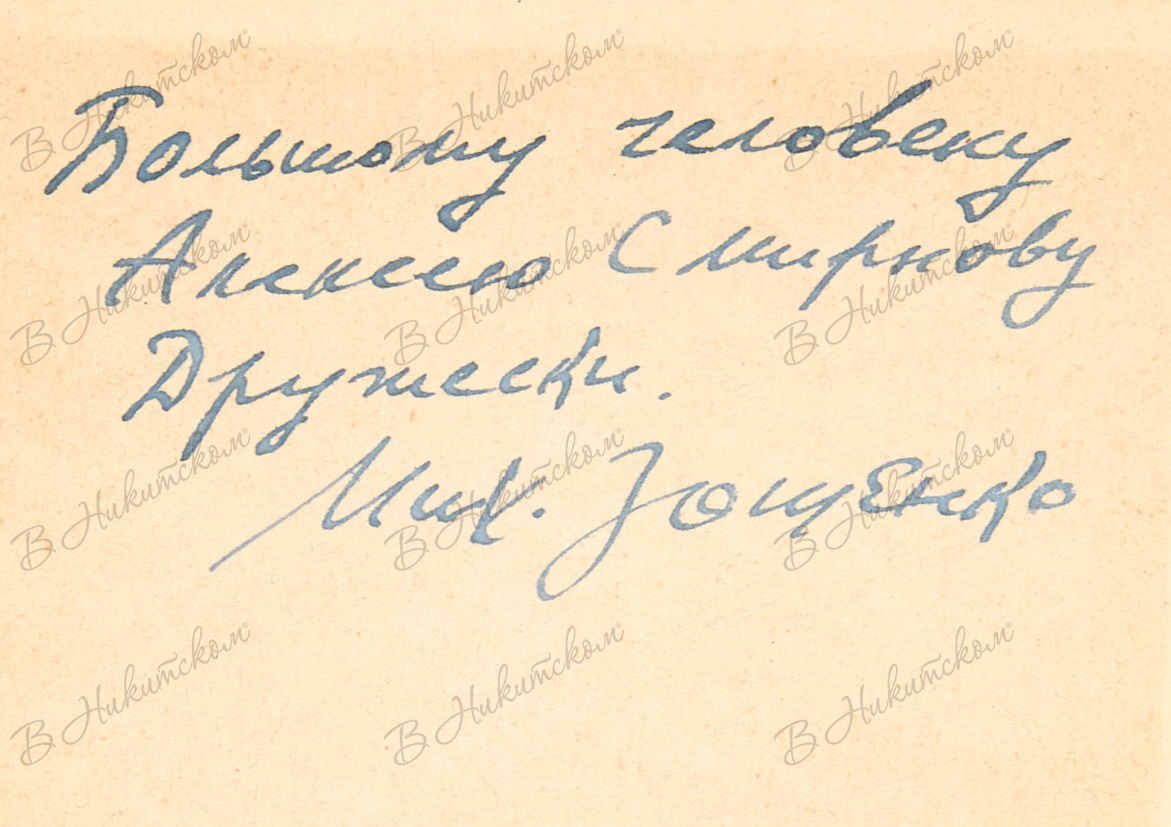 Большому человеку
Алексею Смирнову
Дружески.
Мих. Зощенко
В Никитском
В Никитском
В Никитском
В Никитском
В Никитском
В Никитском
В Никитском
В Никитском
В Никитском
В Никитском
В Никитском
В Никитском